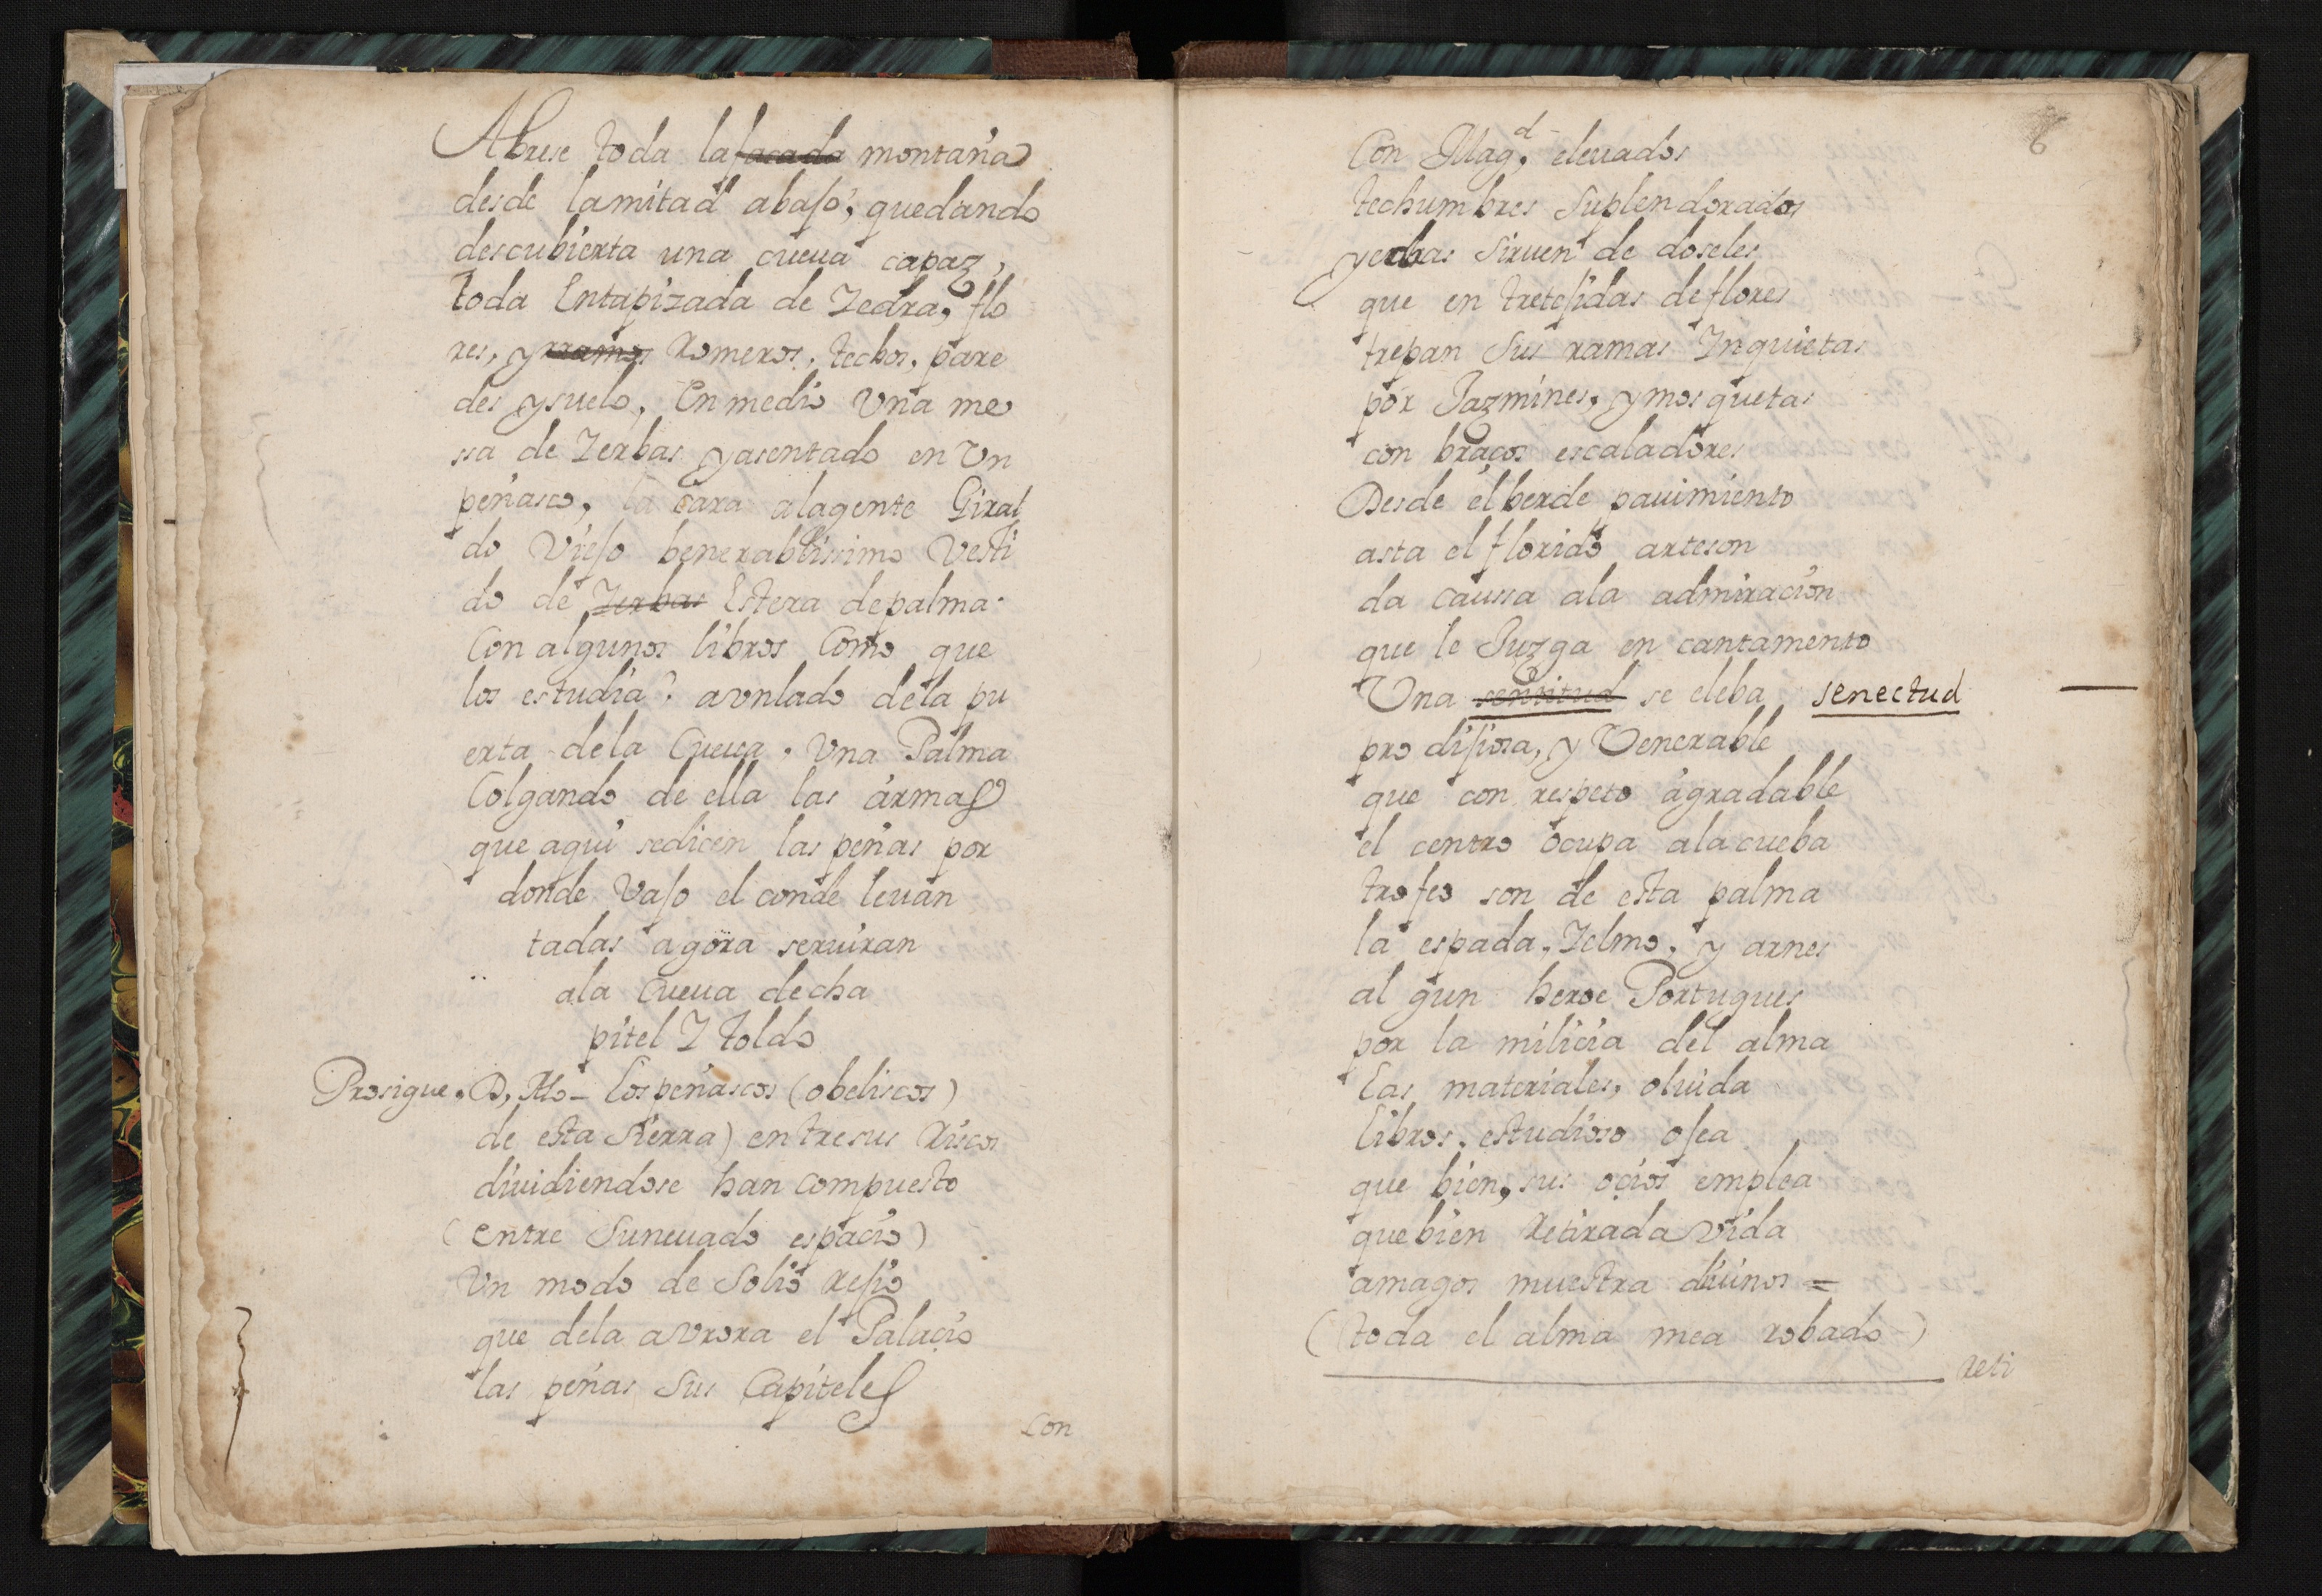 Abrese toda la facada montaña
desde lamitad abajo, quedando
descubierta una cueua capaz,
toda Entapizada de Iedra, flo
res, y rramos Romeros, techos, pare
des y suelo, En medio Una me
ssa de Ierbas y asentado en Un
peñasco, la cara alagente Giral
do Viejo benerablissimo Vesti
do de Ierbas Estera de palma.
Con algunos libros Como que
los estudia: avnlado dela pu
erta dela Cueua. Una Palma
Colgando de ella las armas
que aqui sedicen las peñas por
donde Vajo el conde leuan
tadas agora seruiran
ala Cueua de cha
pitel I toldo
Prosigue. D, Alo- Los peñascos (obeliscos)
de esta Sierra) entresus Riscos
diuidiendose han compuesto
(entre Suneuado espacio)
Un modo de Solio Rejio
que dela avrora el Palaçio
las peñas Sus Capiteles
con
6
Con Magd. eleuados
techumbres Suplendorados
yedras Siruen de doseles
que en tretejidas deflores
trepan Sus ramas Inquietas
por Jazmines, y mosquetas
con braços escaladores
Desde el berde pauimiento
asta el florido arteson
da caussa ala admiracion
que le Juzga en cantamento
Una senitud se eleba senectud
pro dijiosa, y Venerable
que con respeto agradable
el centro ocupa ala cueba
trofeo son de esta palma
la espada, Ielmo, y arnes
al gun heroe Portugues
por la milicia del alma
Las materiales, oluida
Libros, estudioso ojea
que bien, sus oçios emplea
quebien Retirada vida
amagos muestra diuinos =
(toda el alma mea robado)
reti